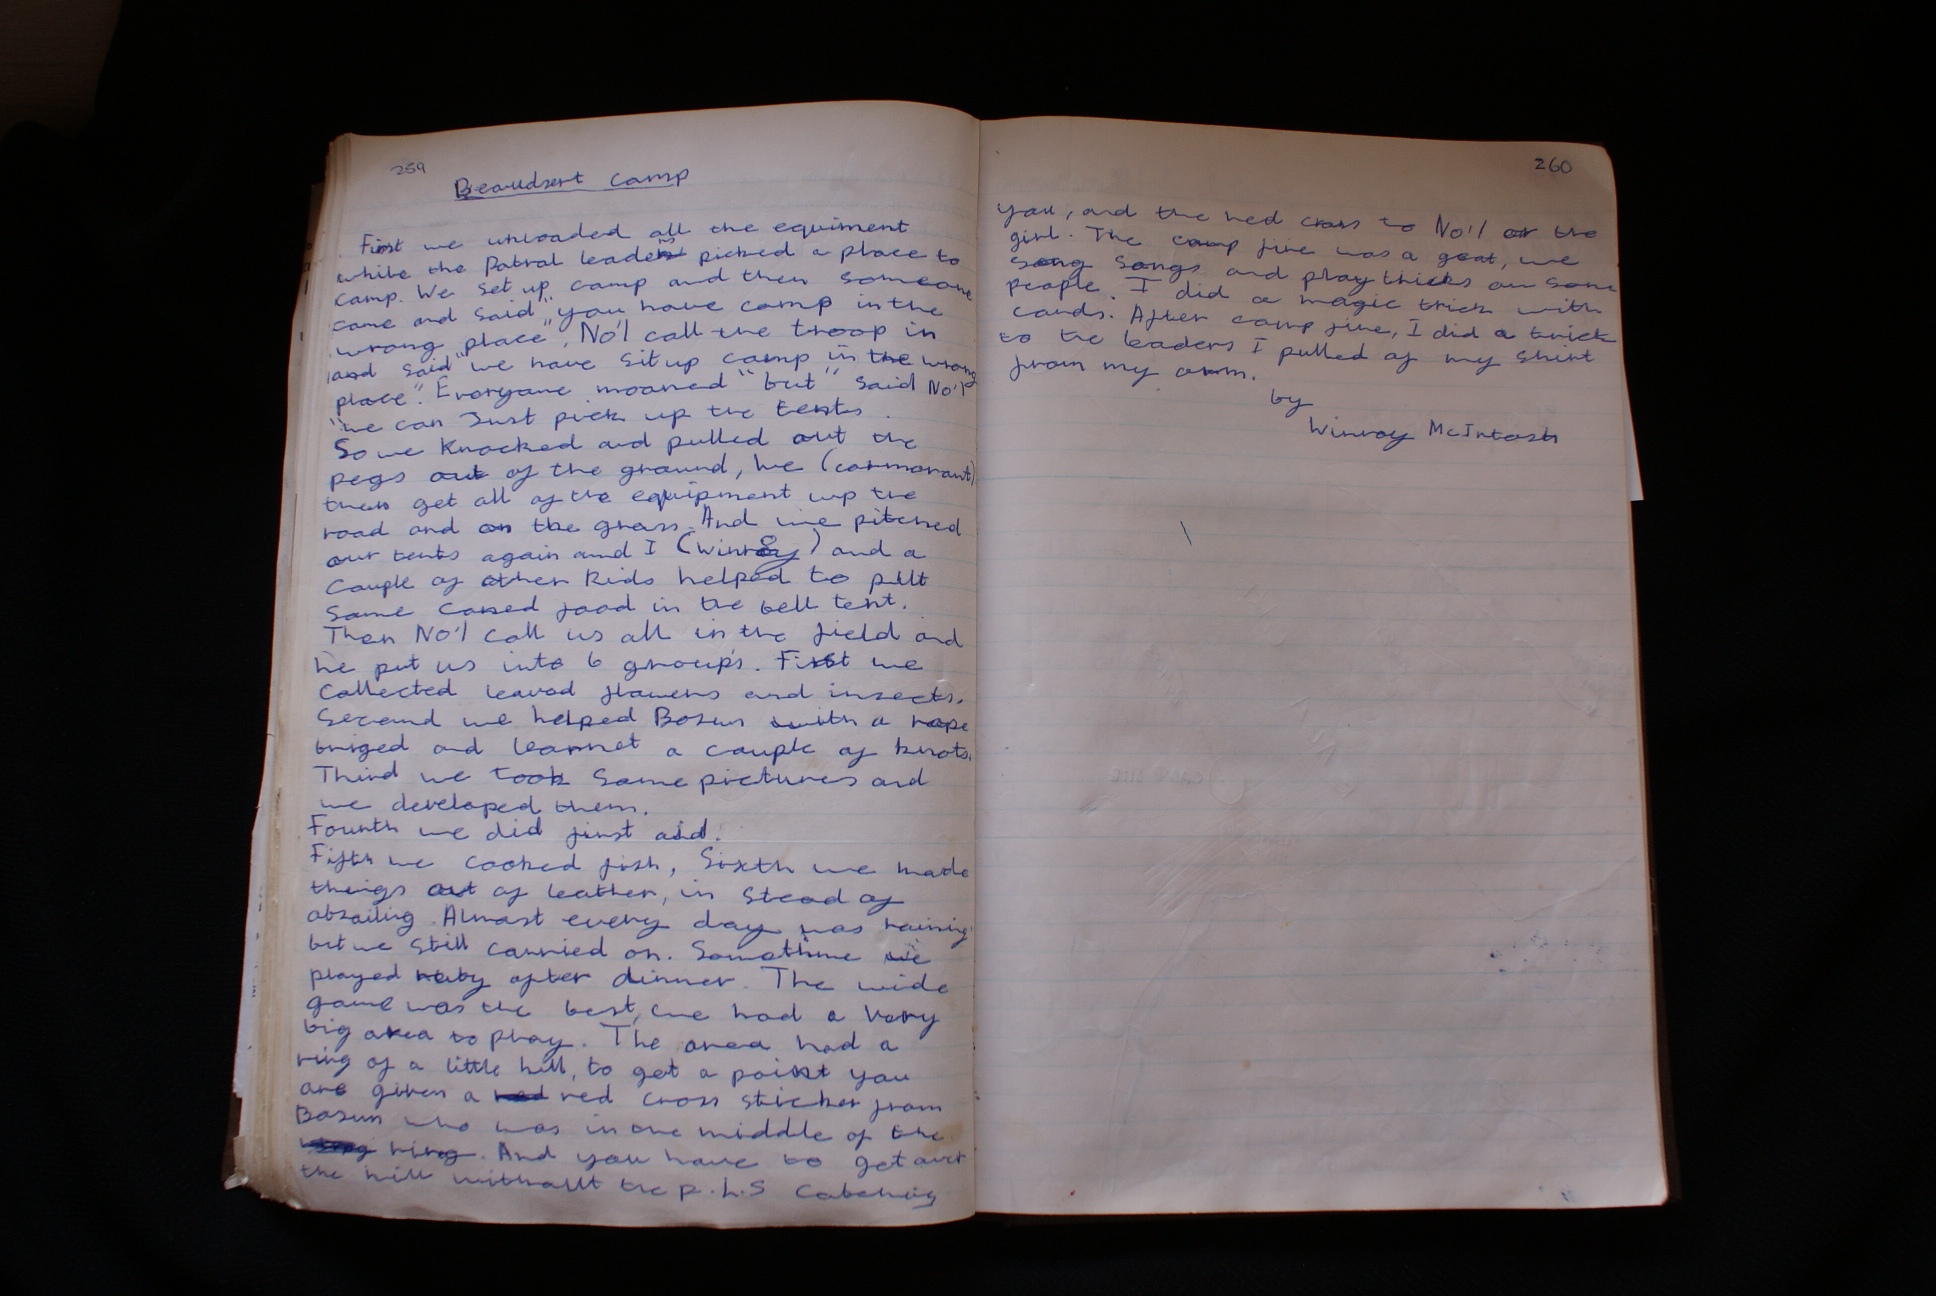 259
Beaudsert camp
First we unloaded all the equiment
while the Patral leaders picked a place to
camp. We set up camp and then someone
came and said "you have camp in the
wrong place". No'1 call the troop in
and said "we have sit up camp in the wrong
place". Everyone moaned "but" said No'1
"we can Just pick up the tents.
So we knocked and pulled out the
pegs out of the ground, we (cormorant)
then get all of the equipment up the
road and on the grass. And we pitched
our tents again and I (Winroy) and a
couple of other kids helped to putt
some caned food in the bell tent.
Then No'1 call us all in the field and
he put us into 6 groups. First we
collected leavad flowers and insects.
Second we helped Bosun with a rope
briged and learnet a couple of knots.
Third we took some pictures and
we developed them.
Fourth we did first aid.
Fifth we cooked fish, Sixth we made
things out of leather, in stead of
absailing. Almost every day was raining
but we still carried on. Somethime we
played ruby after dinner. The wide
game was the best, we had a very
big area to play. The area had a
ring of a little hill, to get a point you
are given a red red cross sticker from
Bosun who was in the middle of the
ring. And you have to get over
the hill without the P.L.S catching
260
you, and the red cross to No'1 or the
girl. The camp fire was a goat, we
song songs and play thicks on some
people. I did a magic trick with
cards. After camp fire, I did a trick
to the leaders I pulled of my shirt
from my arm.
by
Winroy McIntosh